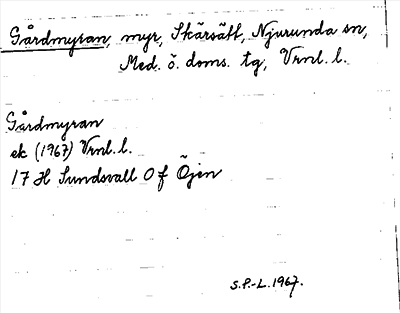 Gårdmyran, myr, Skärsätt, Njurunda sn,
Med. ö. doms. tg, Vrnl. l.
Gårdmyran
ek (1967) Vrnl. l.
17 H Sundsvall 0 f Öjen
S.P.-L. 1967.